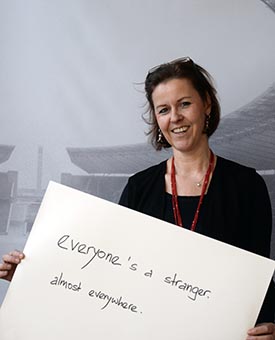 everyone's a stranger.
almost everywhere.